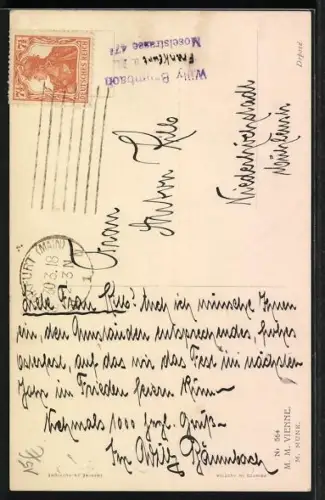 7½ 7½
DEUTSCHES REICH
Willy Baumbach
Frankfurt a. M.
Moselstrasse 47
Frau
Anton
Depond
(MAIN)
30.3.18
Liebe Frau! Auch ich wünsche Ihnen
ein, den Umständen entsprechendes, frohes
Osterfest, auf das wir das Fest im nächsten
Jahr in Frieden feiern können
Nochmals 1000 herzl. Grüße
Ihr Willy Baumbach
No 564
M. M. VIENNE.
M. MUNK.